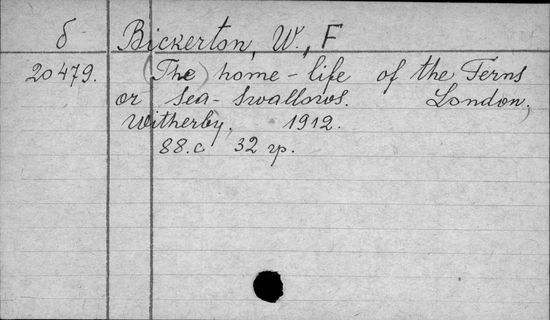 б Bickerton, W., F
20479. (The) home-life of the Terns
or sea-swallows. London,
Witherby. 1912.
88.c 32 гр.